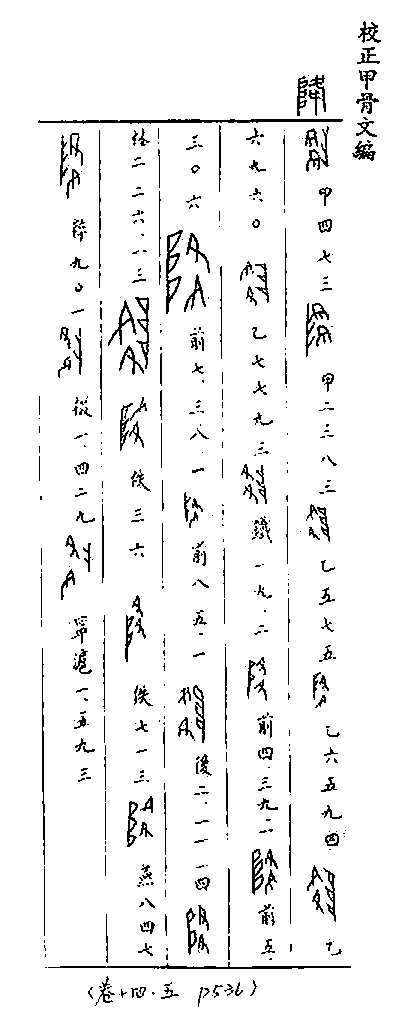 校正甲骨文編
降
甲四七三 甲二三八三 乙五七五 乙六五九四 乙
六九六〇 乙七七九三 鐵一九.二 前四.三九二 前五.
三〇六 前七.三八.一 前八五.一 後二.一一.四
二二六.一三 佚三六 佚七一三 燕八四七
粹九〇一 掇一.四二九 寧滬一.五九三
(卷十四.五 P536)